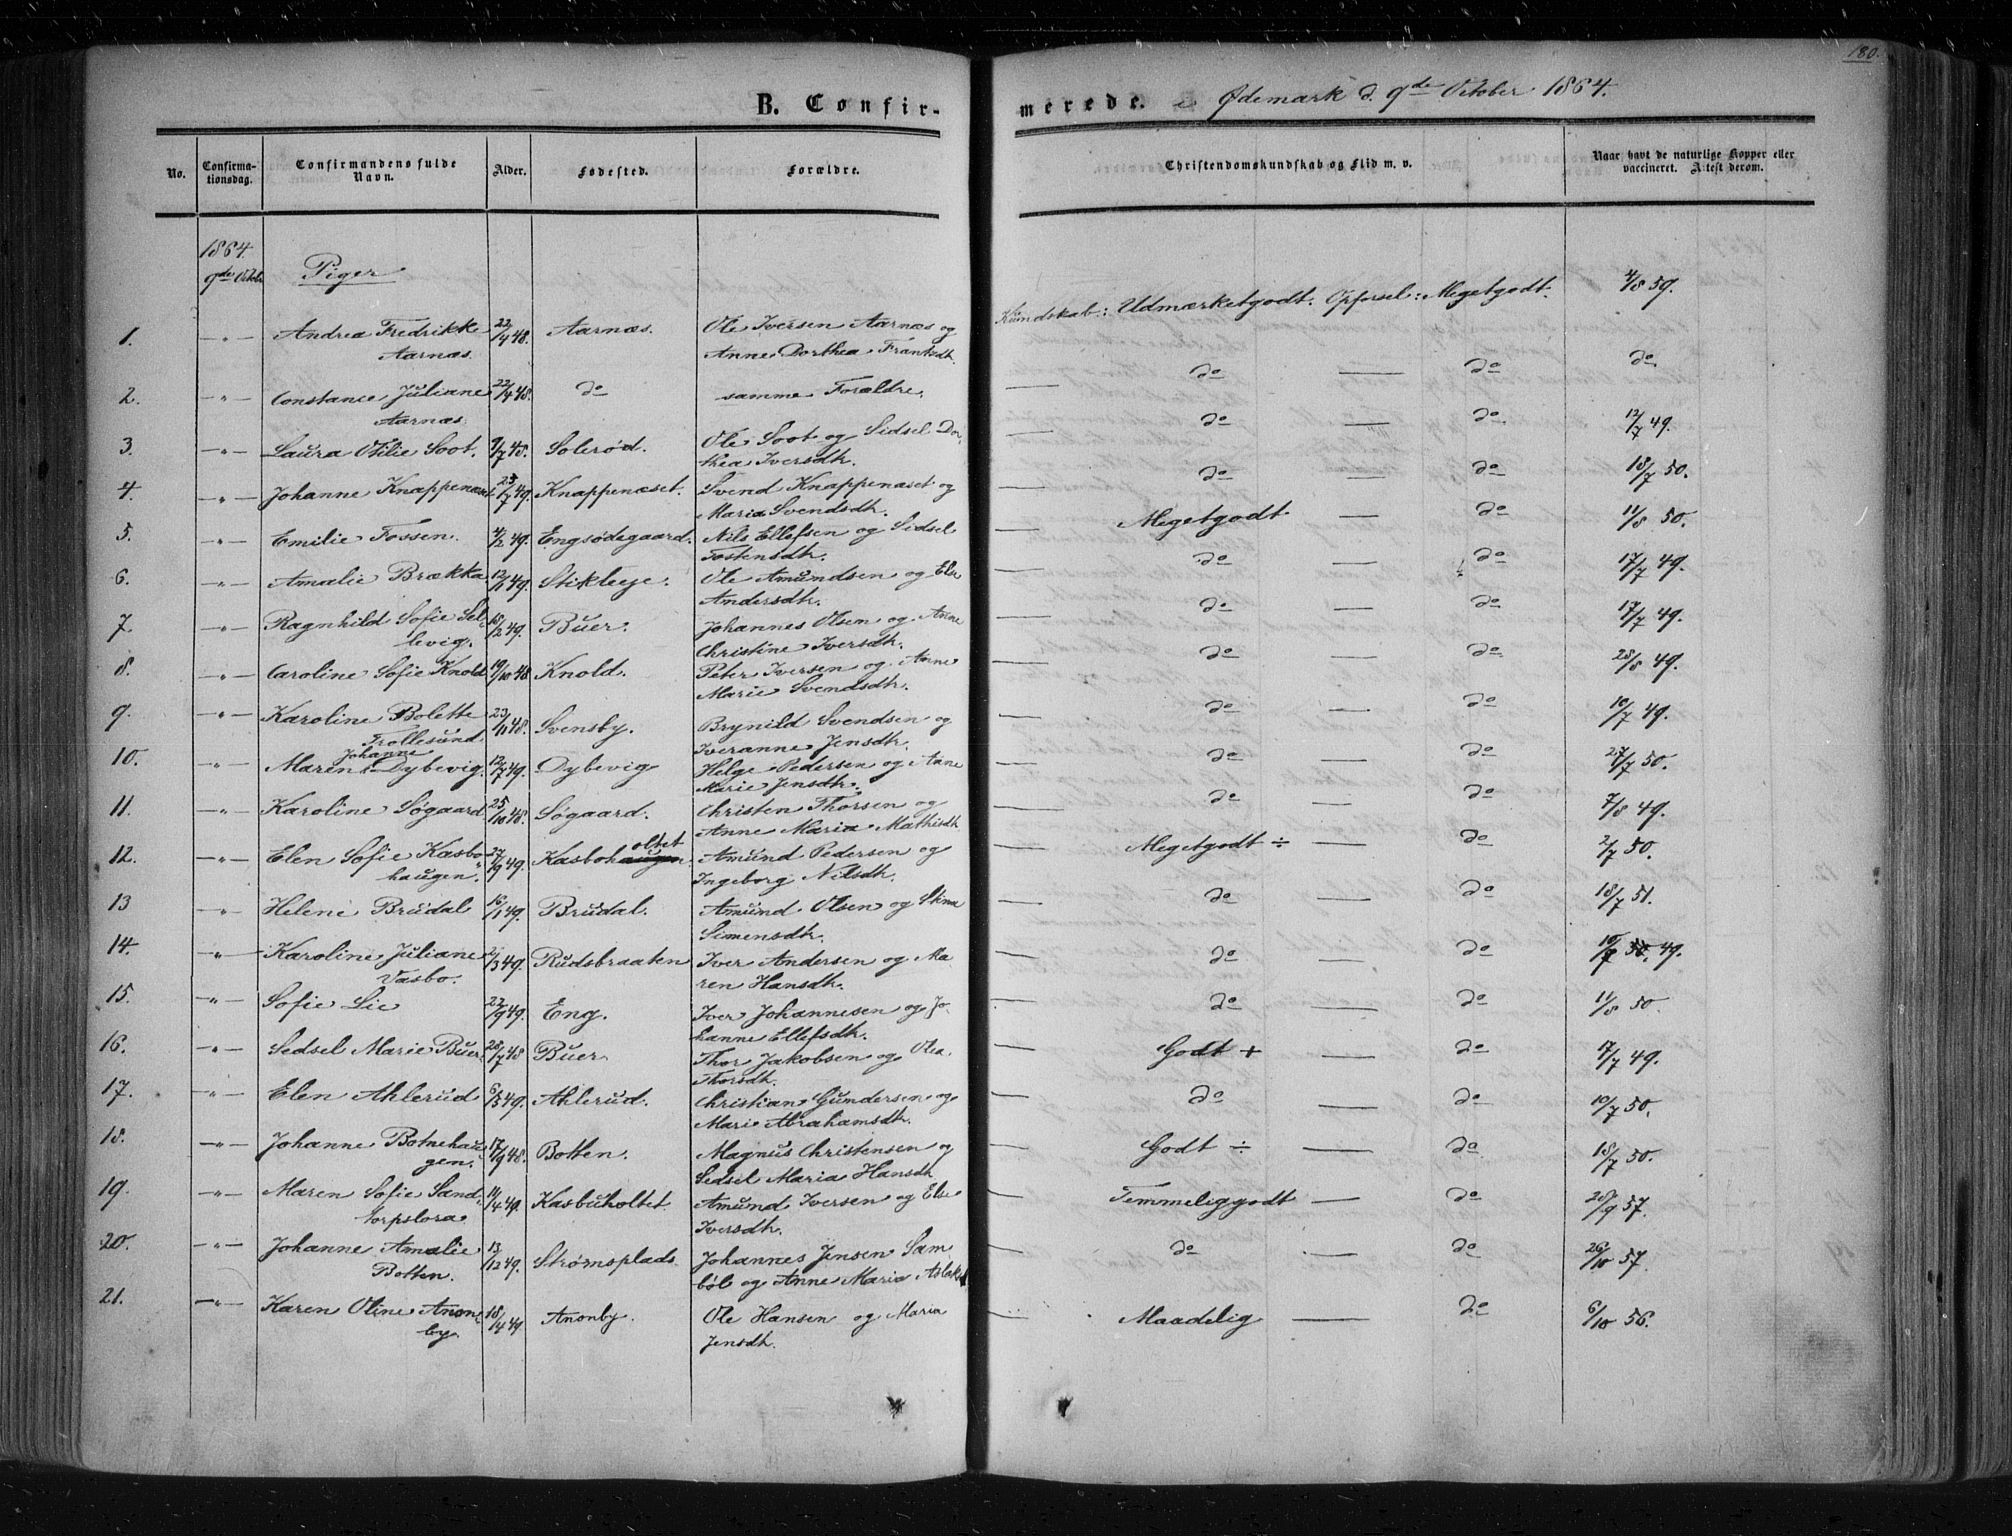 180.
B. Confir-
merede. i Ødemark d. 9de October 1864.
No. Confirma-tionsdag. Confirmandens fulde Navn. Alder. Fødested. Forældre.
Christendomskundskab og Flid m. v. Naar havt de naturlige Kopper eller vaccineret. Attest derom.
1864
9de Octobr Piger
1. -"- Andrea Fredrikke 22/4 48. Aarnæs. Ole Iversen Aarnæs og Kundskab: Udmærketgodt. Opførsel: Megetgodt. 4/8 59.
Aarnæs. Anne Dorthea Frantsdt.
2. -"- Constance Juliane 22/4 48. do samme Forældre. — do — do do
Aarnæs.
3. -"- Laura Otilie Soot. 9/7 48. Solerød. Ole Soot og Sidsel Dor- — do — do. 12/7 49.
thea Iversdtr.
4. -"- Johanne Knappenæset 23/7 49. Knappenæset. Svend Knappenæset og — do — do 18/7 50.
Maria Svendsdtr.
5. -"- Emilie Fossen. 4/2 49. Engsødegaard. Nils Ellefsen og Sidsel — Megetgodt — do 11/8 50.
Tostensdtr.
6. -"- Amalie Brækka 12/1 49. Stikleje. Ole Amundsen og Else — do — do 17/7 49.
Andersdtr.
7. -"- Ragnhild Sofie Sel- 15/2 49. Buer. Johannes Olsen og Anne — do — do 17/7 49.
bevig. Christine Iversdtr.
8. -"- Caroline Sofie Knold 19/10 48 Knold. Peter Iversen og Anne — do — do 28/8 49.
Marie Svendsdtr.
9. -"- Karoline Bolette 23/11 48. Svensby. Brynild Svendsen og — do — do 10/7 49.
Trollesund. Iveranne Jensdtr.
Johanne
10. Maren Dybevig. 12/7 49. Dybevig Helge Pedersen og Anne — do — do 27/7 50.
Marie Jensdtr.
11. -"- Karoline Søgaard 25/10 48. Søgaard. Christen Thorsen og — do — do 7/8 49.
Anne Maria Mathisdtr
oltet
12. -"- Elen Sofie Kasbo- 27/9 49. Kasbohaugen. Amund Pedersen og — Megetgodt ÷ — do 2/7 50.
haugen. Ingeborg Nilsdtr.
13 -"- Helene Brudal 16/1 49. Brudal. Amund Olsen og Stina — do — do 18/7 51.
Simensdtr.
14. -"- Karoline Juliane 2/3 49. Rudsbraaten Iver Andersen og Ma — do — do 10/7 50. 49.
Vasbo. ren Hansdtr.
15. -"- Sofie Lie 22/9 49. Eng. Iver Johannesen og Jo- — do — do 11/8 50.
hanne Ellefsdtr.
16. -"- Sedsel Marie Buer. 28/7 48 Buer Thor Jakobsen og Olea — Godt + — do 17/7 49.
Thorsdtr.
17. -"- Elen Ahlerud 6/3 49. Ahlerud. Christian Gundersen og — do — do 10/7 50.
Mari Abrahamsdtr.
18. -"- Johanne Botnehau- 17/9 48. Botten. Magnus Christensen og — Godt ÷ — do 18/7 50.
gen. Sedsel Maria Hansdtr
19. -"- Maren Sofie Sand 14/4 49. Kasbuholtet Amund Iversen og Else — Temmeliggodt — do 28/9 57.
torpslora Iversdtr.
20. -"- Johanne Amalie 12/12 49. Strømsplads Johannes Jensen Sam — do — do 26/10 57.
Botten. bøl og Anne Maria Aslaksd
21. -"- Karen Oline Anone- 18/4 49 Anonby. Ole Hansen og Maria Maadelig — do 6/10 56.
by. Jensdtr.